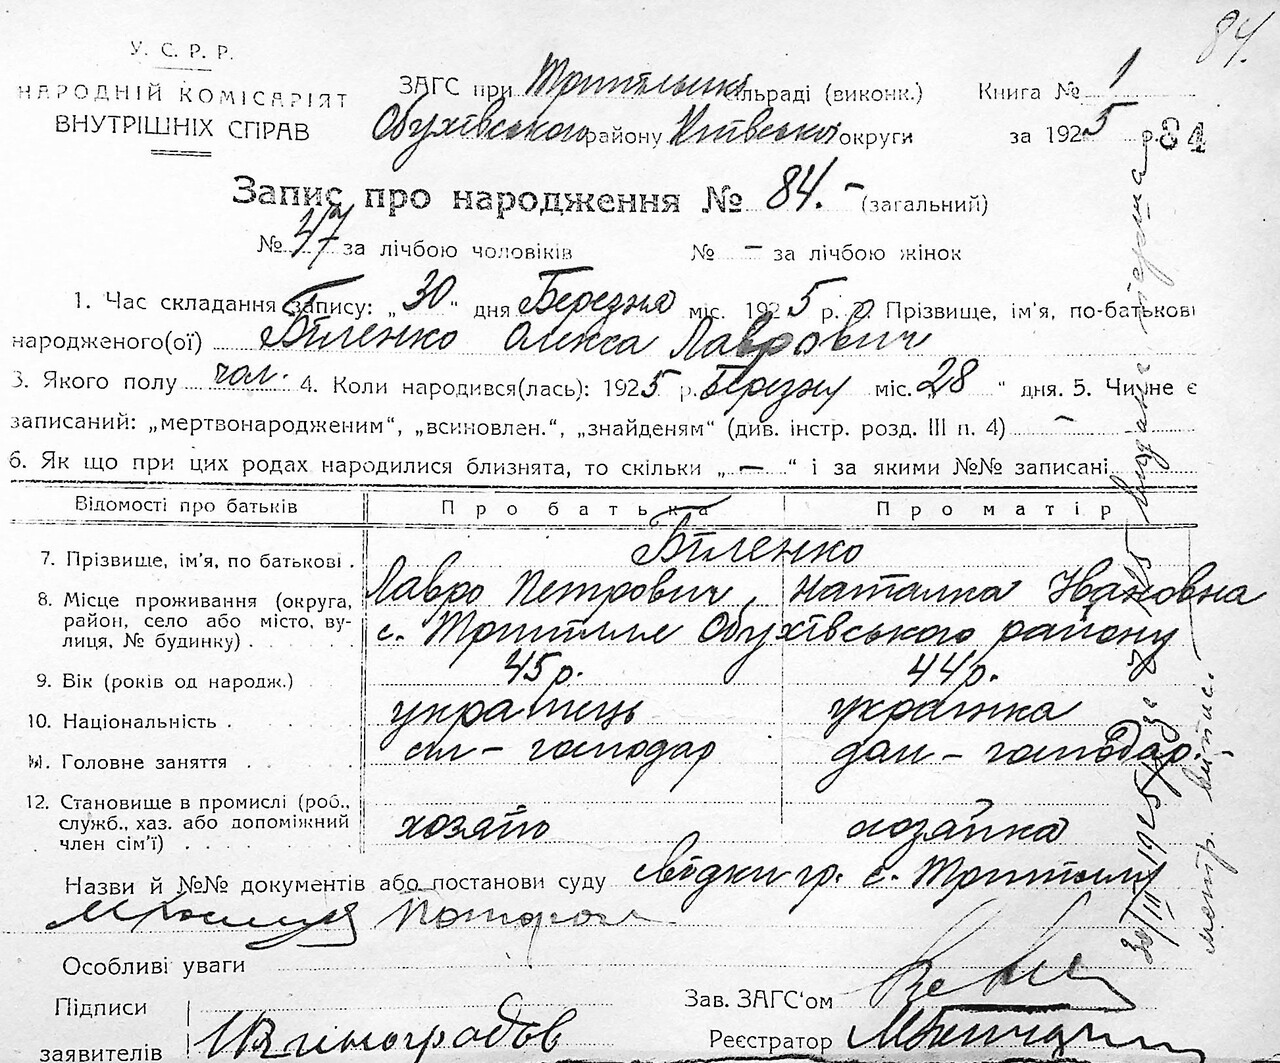 84.
У. С. Р. Р.
НАРОДНІЙ КОМІСАРІЯТ
ВНУТРІШНІХ СПРАВ
ЗАГС при Трипільській сільраді (виконк.)
Книга № 1
Обухівського району Київської округи
за 1925 р.
84
Запис про народження № 84. – (загальний)
№ 47 за лічбою чоловіків № – за лічбою жінок
1. Час складання запису: „30“ дня Березня міс. 1925 р. 2. Прізвище, ім'я, по-батькові
народженого(ої) Біленко Олекса Лаврович
3. Якого полу чол. 4. Коли народився(лась): 1925 р. Березня міс. „28“ дня. 5. Чи не є
записаний: „мертвонародженим“, „всиновлен.“, „знайденям“ (див. інстр. розд. III п. 4) –
6. Як що при цих родах народилися близнята, то скільки „ – “ і за якими №№ записані
Відомості про батьків Про батька Про матір
7. Прізвище, ім'я, по батькові . Біленко
Лавро Петрович, Наталка Ивановна
8. Місце проживання (округа,
район, село або місто, ву-
лиця, № будинку) . с. Трипілля Обухівського району
9. Вік (років од народж.) 45 р. 44 р.
10. Національність . українець українка
11. Головне заняття . . сіл – господар дом – господар.
12. Становище в промислі (роб.,
служб., хаз. або допоміжний
член сім'ї) . хозяїн хозяйка
Назви й №№ документів або постанови суду свідки гр. с. Трипілля
Особливі уваги
Підписи
заявителів Виноградов
Зав. ЗАГС'ом
Реєстратор
30/III 1925
метр. витяг.